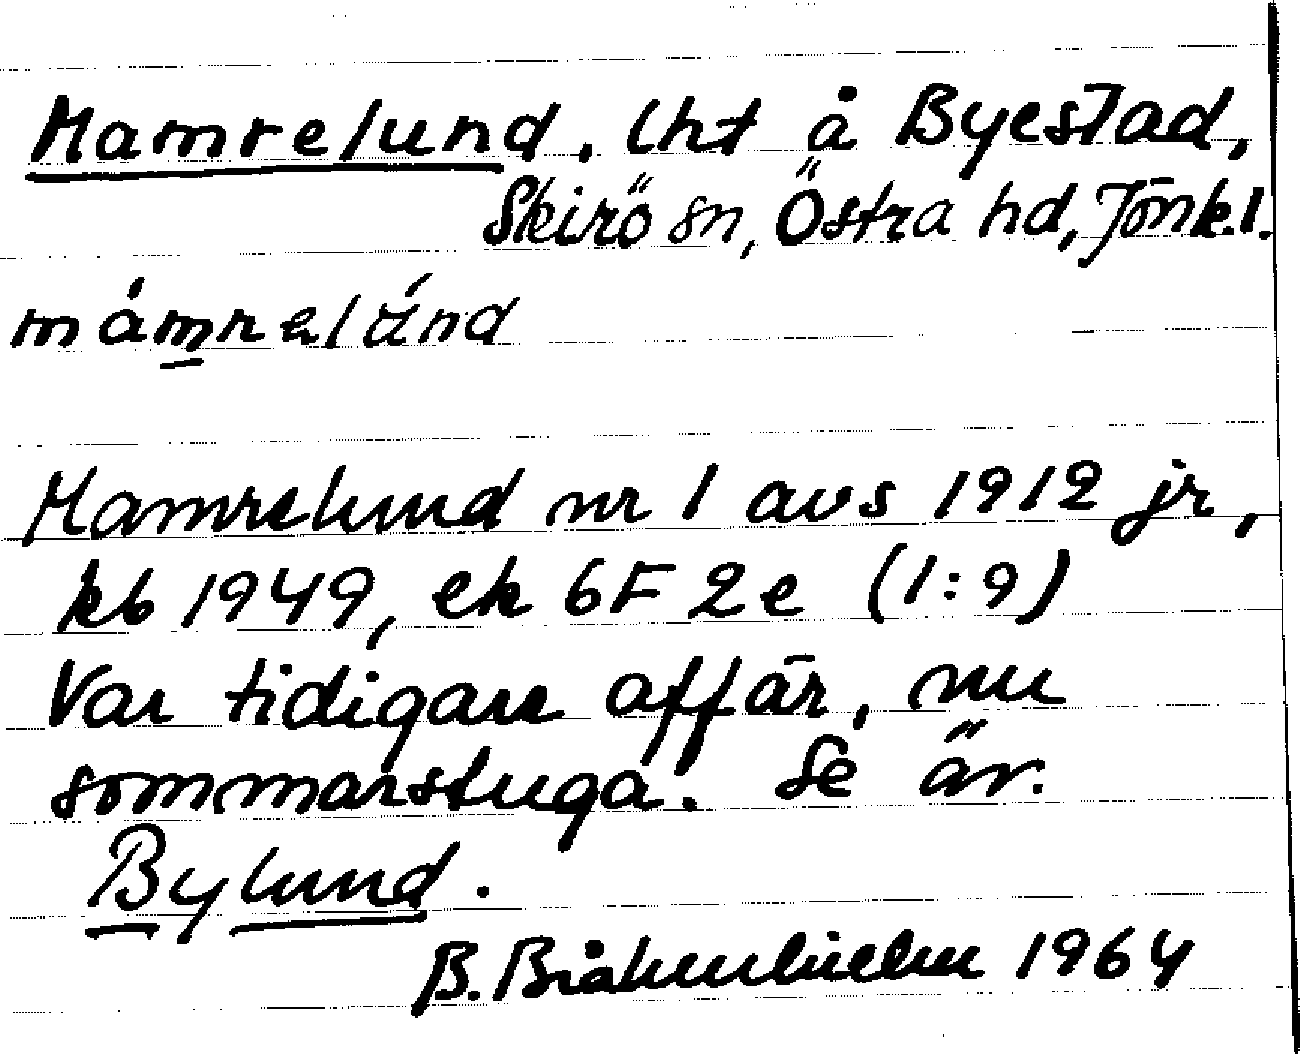 Mamrelund, lht å Byestad,
Skirö sn, Östra hd, Jönk.l.
Mamrelund nr 1 avs 1912 jr,
kb 1949, ek 6F 2e (1:9)
Var tidigare affär, nu
sommarstuga. Se äv.
Bylund.
B. 1964